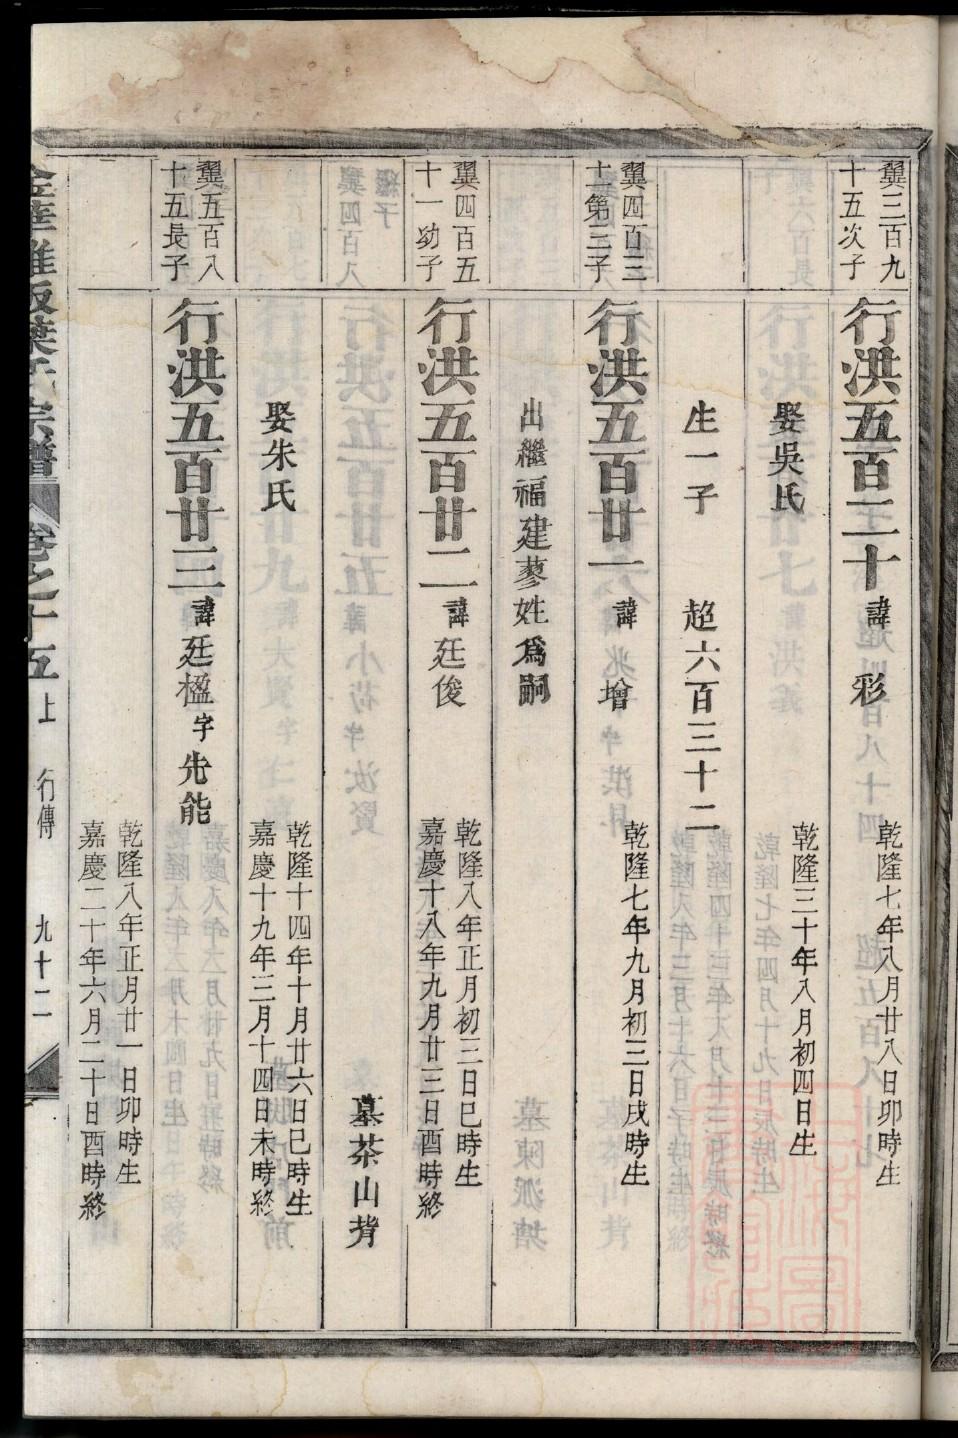 翼三百九
十五次子
行洪五百二十 諱 彩
乾隆七年八月廿八日卯時生
娶吳氏
乾隆三十年八月初四日生
生一子 超六百三十二
翼四百三
十二第三子
行洪五百廿一 諱 增
乾隆七年九月初三日戌時生
出繼福建蓼姓爲嗣
翼四百五
十一幼子
行洪五百廿二 諱 廷俊
乾隆八年正月初三日巳時生
嘉慶十八年九月廿三日酉時終
墓茶山背
娶朱氏
乾隆十四年十月廿六日巳時生
嘉慶十九年三月十四日未時終
翼五百八
十五長子
行洪五百廿三 諱 廷楹 字 先能
乾隆八年正月廿一日卯時生
嘉慶二十年六月二十日酉時終
葉氏宗譜 卷之十五 上 行傳 九十二